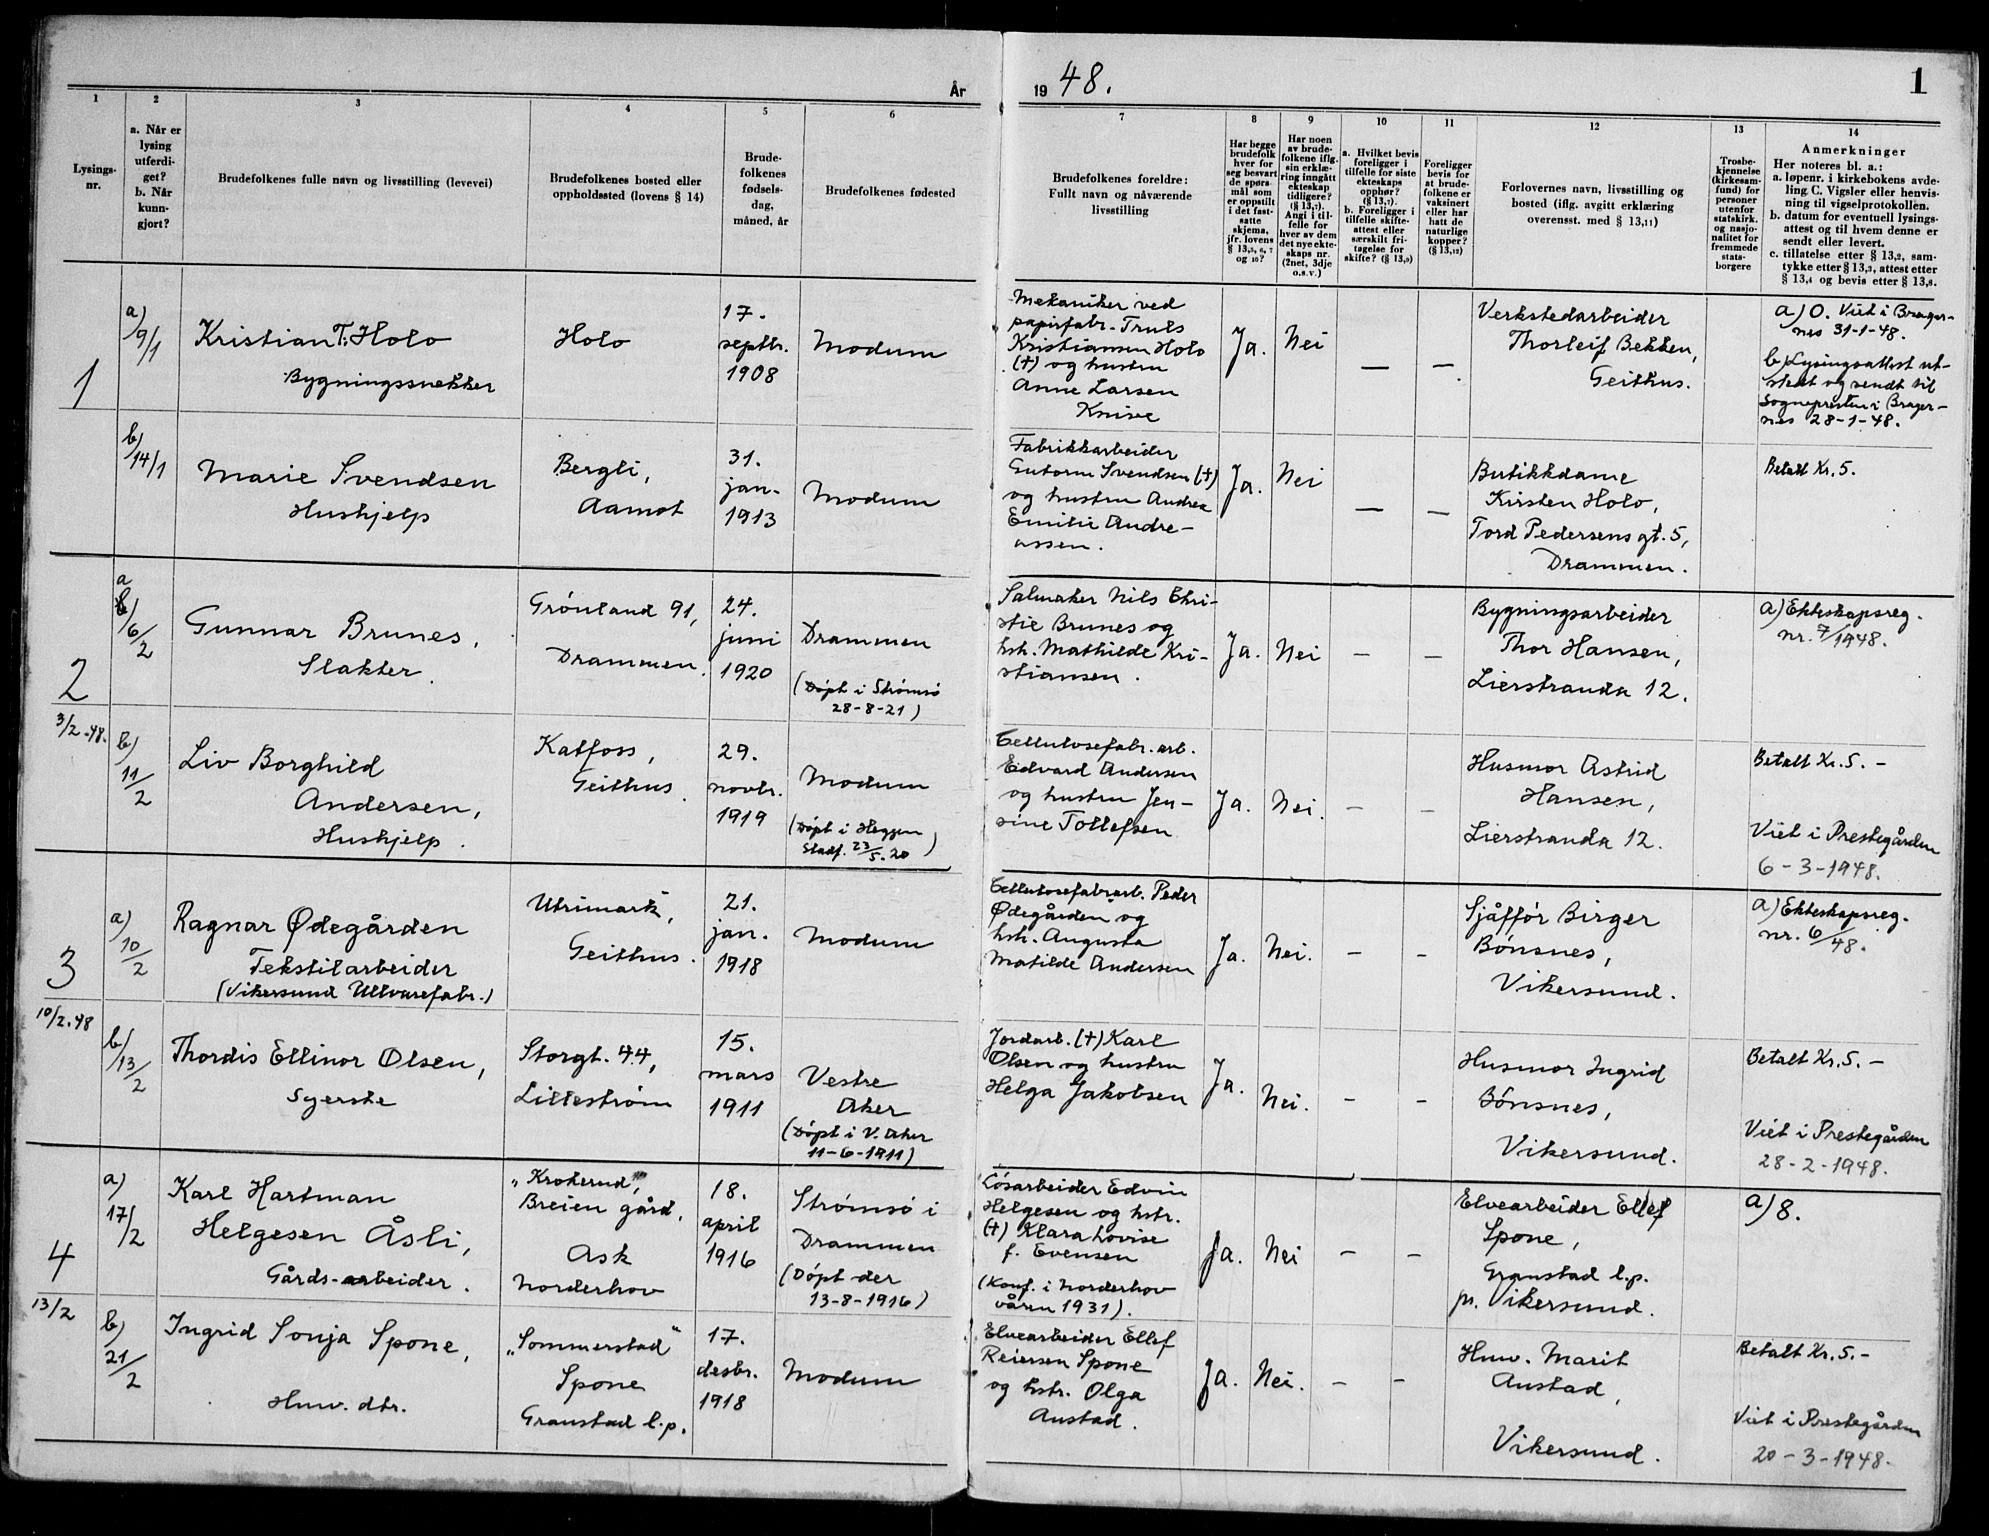 År
19 48.
1
1
2
3
4
5
6
7
8
9
10
11
12
13
14
Lysings-
nr.
a. Når er
lysing
utferdi-
get?
b. Når
kunn-
gjort?
Brudefolkenes fulle navn og livsstilling (levevei)
Brudefolkenes bosted eller
oppholdssted (lovens § 14)
Brude-
folkenes
fødsels-
dag,
måned, år
Brudefolkenes fødested
Brudefolkenes foreldre:
Fullt navn og nåværende
livsstilling
Har begge
brudefolk
hver for
seg besvart
de spørs-
mål som
er oppstilt
i det fast-
satte
skjema,
jfr. lovens
§ 13,5, 6, 7
og 10?
Har noen
av brude-
folkene iflg.
sin erklæ-
ring inngått
ekteskap
tidligere?
(§ 13,7).
Angi i til-
felle for
hver av dem
det nye ekte-
skaps nr.
(2net, 3dje
o.s.v.)
a. Hvilket bevis
foreligger i
tilfelle for siste
ekteskaps
opphør?
(§ 13,7).
b. Foreligger i
tilfelle skifte-
attest eller
særskilt fri-
tagelse for
skifte? (§ 13,9)
Foreligger
bevis for
at brude-
folkene er
vaksinert
eller har
hatt de
naturlige
kopper?
(§ 13,12)
Forlovernes navn, livsstilling og
bosted (iflg. avgitt erklæring
overensst. med § 13,11)
Trosbe-
kjennelse
(kirkesam-
fund) for
personer
utenfor
statskirk.
og nasjo-
nalitet for
fremmede
stats-
borgere
Anmerkninger
Her noteres bl. a.:
a. løpenr. i kirkebokens avde-
ling C. Vigsler eller henvis-
ning til vigselprotokollen.
b. datum for eventuell lysings-
attest og til hvem denne er
sendt eller levert.
c. tillatelse etter § 13,2, sam-
tykke etter § 13,3, attest etter
§ 13,4 og bevis etter § 13,8.
1
a)
9/1
Kristian T. Holo
Bygningssnekker
Holo
17.
septbr.
1908
Modum
Mekaniker ved
papirfabr. Truls
Kristiansen Holo
(†) og hustru
Anne Larsen
Knive
Ja.
Nei
—
—
Verkstedarbeider
Thorleif Bekken,
Geithus.
a) O. Viet i Brager-
nes 31-1-48.
b) Lysingsattest ut-
stedt og sendt til
Sognepresten i Brager-
nes 28-1-48.
b)
14/1
Marie Svendsen
Hushjelp
Bergli,
Aamot
31.
jan.
1913
Modum
Fabrikkarbeider
Gutorm Svendsen (†)
og hustru Andrea
Emilie Andre-
assen.
Ja.
Nei
—
—
Butikkdame
Kirsten Holo,
Tord Pedersens gt. 5,
Drammen.
Betalt Kr. 5.
2
3/2-48.
a
6/2
Gunnar Brunes,
Slakter.
Grönland 91,
Drammen.
24.
juni
1920
Drammen
(Döpt i Strömsö
28-8-21)
Salmaker Nils Chri-
stie Brunes og
hsh. Mathilde Kri-
stiansen.
Ja.
Nei
—
—
Bygningsarbeider
Thor Hansen,
Lierstranda 12.
a) Ekteskapsreg.
nr. 7/1948.
b)
11/2
Liv Borghild
Andersen,
Hushjelp.
Katfoss,
Geithus.
29.
novbr.
1919
Modum
(Döpt i Heggen
Stadf. 23/5.20)
Cellulosefabr. arb.
Edvard Andersen
og hustru Jen-
sine Tollefsen
Ja.
Nei.
—
—
Husmor Astrid
Hansen,
Lierstranda 12.
Betalt Kr. 5. -
Viet i Prestegården
6-3-1948.
3
10/2.48
a)
10/2
Ragnar Ødegården
Tekstilarbeider
(Vikersund Ullvarefabr.)
Utrimark,
Geithus.
21.
jan.
1918
Modum
Cellulosefabrarb. Peder
Ødegården og
hsh. Augusta
Matilde Andersen
Ja.
Nei.
—
—
Sjåfför Birger
Bönsnes,
Vikersund.
a) Ekteskapsreg.
nr. 6/48.
b/
13/2
Thordis Ellinor Olsen,
Syerske
Storgt. 44,
Lilleström
15.
mars
1911
Vestre
Aker
(Döpt i V. Aker
11-6-1911)
Jordarb. (†) Karl
Olsen og hustru
Helga Jakobsen
Ja.
Nei.
—
—
Husmor Ingrid
Bönsnes,
Vikersund.
Betalt Kr. 5. -
Viet i Prestegården
28-2-1948.
4
13/2
a)
17/2
Karl Hartman
Helgesen Åsli,
Gårds-arbeider.
"Krokerud",
Breien gård,
Ask
Norderhov
18.
april
1916
Strömsö i
Drammen
(Döpt der
13-8-1916)
Lösarbeider Edvin
Helgesen og hstr.
(†) Klara Lovise
f. Evensen
(Konf. i Norderhov
våren 1931).
Ja.
Nei
—
—
Elvearbeider Ellef
Spone,
Granstad l.p.
pr. Vikersund.
a) 8.
b)
21/2
Ingrid Sonja Spone,
Huw. dtr.
"Sommerstad"
Spone
Granstad l.p.
17.
desbr.
1918
Modum
Elvearbeider Ellef
Reiersen Spone
og hstr. Olga
Austad.
Ja.
Nei.
—
—
Huw. Marit
Austad,
Vikersund.
Betalt Kr. 5. -
Viet i Prestegården
20-3-1948.